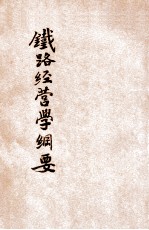 鐵路經營學綱要